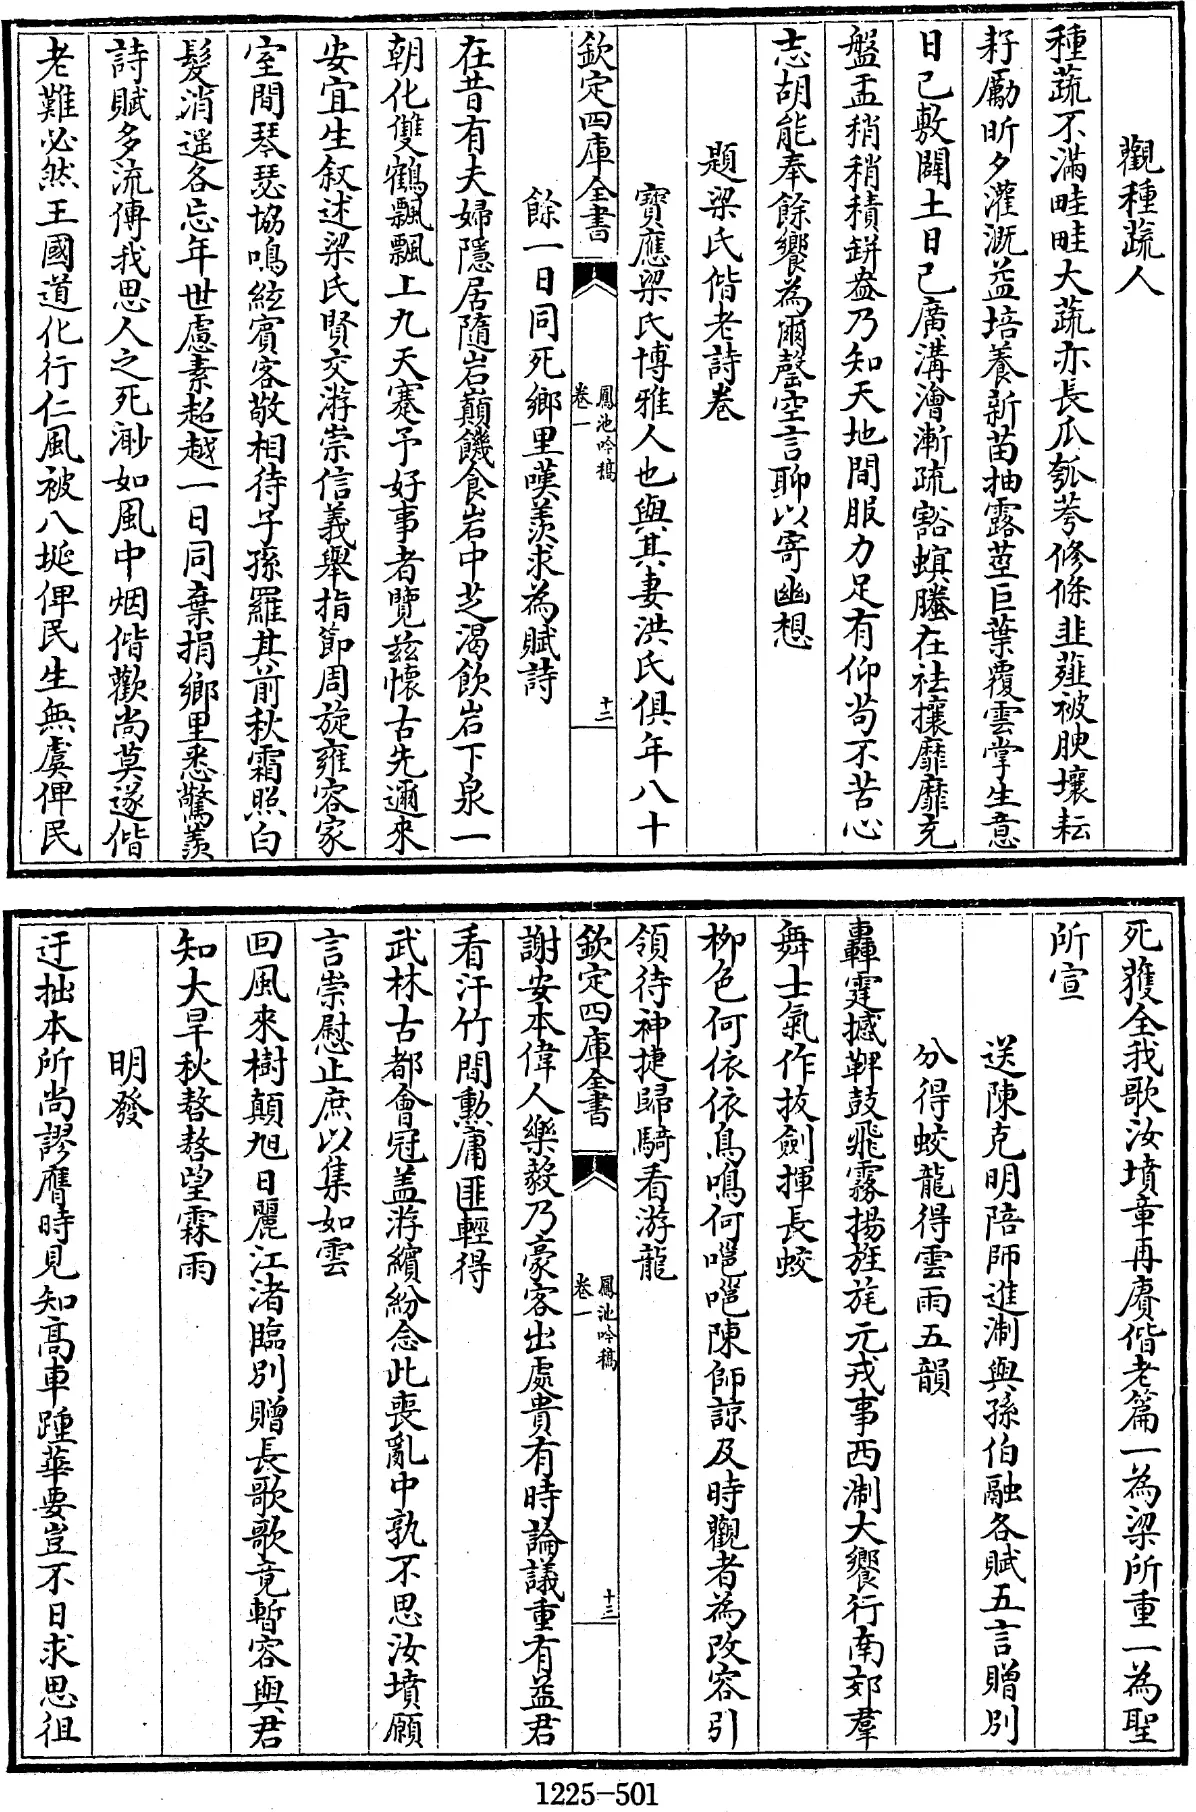 觀種蔬人
種蔬不滿畦畦大蔬亦長瓜瓠荂修條韭薤被腴壤耘
耔勵昕夕灌溉益培養新苗抽露莖巨葉覆雲掌生意
日已敷闢土日已廣溝澮漸疏豁螟螣在袪攘靡靡充
盤盂稍稍積缾盎乃知天地間服力足有仰茍不苦心
志胡能奉餘饗為爾罄空言聊以寄幽想
題梁氏偕老詩卷
寶應梁氏博雅人也與其妻洪氏俱年八十
欽定四庫全書
鳳池吟稿
卷一
十二
餘一日同死鄉里嘆羨求為賦詩
在昔有夫婦隱居隨岩巔饑食岩中芝渴飲岩下泉一
朝化雙鶴飄飄上九天蹇予好事者覽兹懷古先邇來
安宜生叙述梁氏賢交游崇信義舉指節周旋雍容家
室間琴瑟協鳴絃賓客敬相待子孫羅其前秋霜照白
髮消遥各忘年世慮素超越一日同棄捐鄉里悉驚羨
詩賦多流傳我思人之死渺如風中烟偕歡尚莫遂偕
老難必然王國道化行仁風被八埏俾民生無虞俾民
死獲全我歌汝墳章再賡偕老篇一為梁所重一為聖
所宣
送陳克明陪師進淛與孫伯融各賦五言贈別
分得蛟龍得雲雨五韻
轟霆撼鞞鼓飛霧揚旌旄元戎事西淛大饗行南郊羣
舞士氣作抜劍揮長蛟
柳色何依依鳥鳴何嗈嗈陳師諒及時觀者為改容引
領待神捷歸騎看游龍
欽定四庫全書
鳳池吟稿
卷一
十三
謝安本偉人樂毅乃豪客出處貴有時論議重有益君
看汗竹間勳庸匪輕得
武林古都會冠盖游繽紛念此喪亂中孰不思汝墳願
言崇慰止庶以集如雲
回風來樹顛旭日麗江渚臨別贈長歌歌竟暫容與君
知大旱秋嗸嗸望霖雨
明發
迂拙本所尚謬膺時見知高車踵華要豈不日求思徂
1225-501